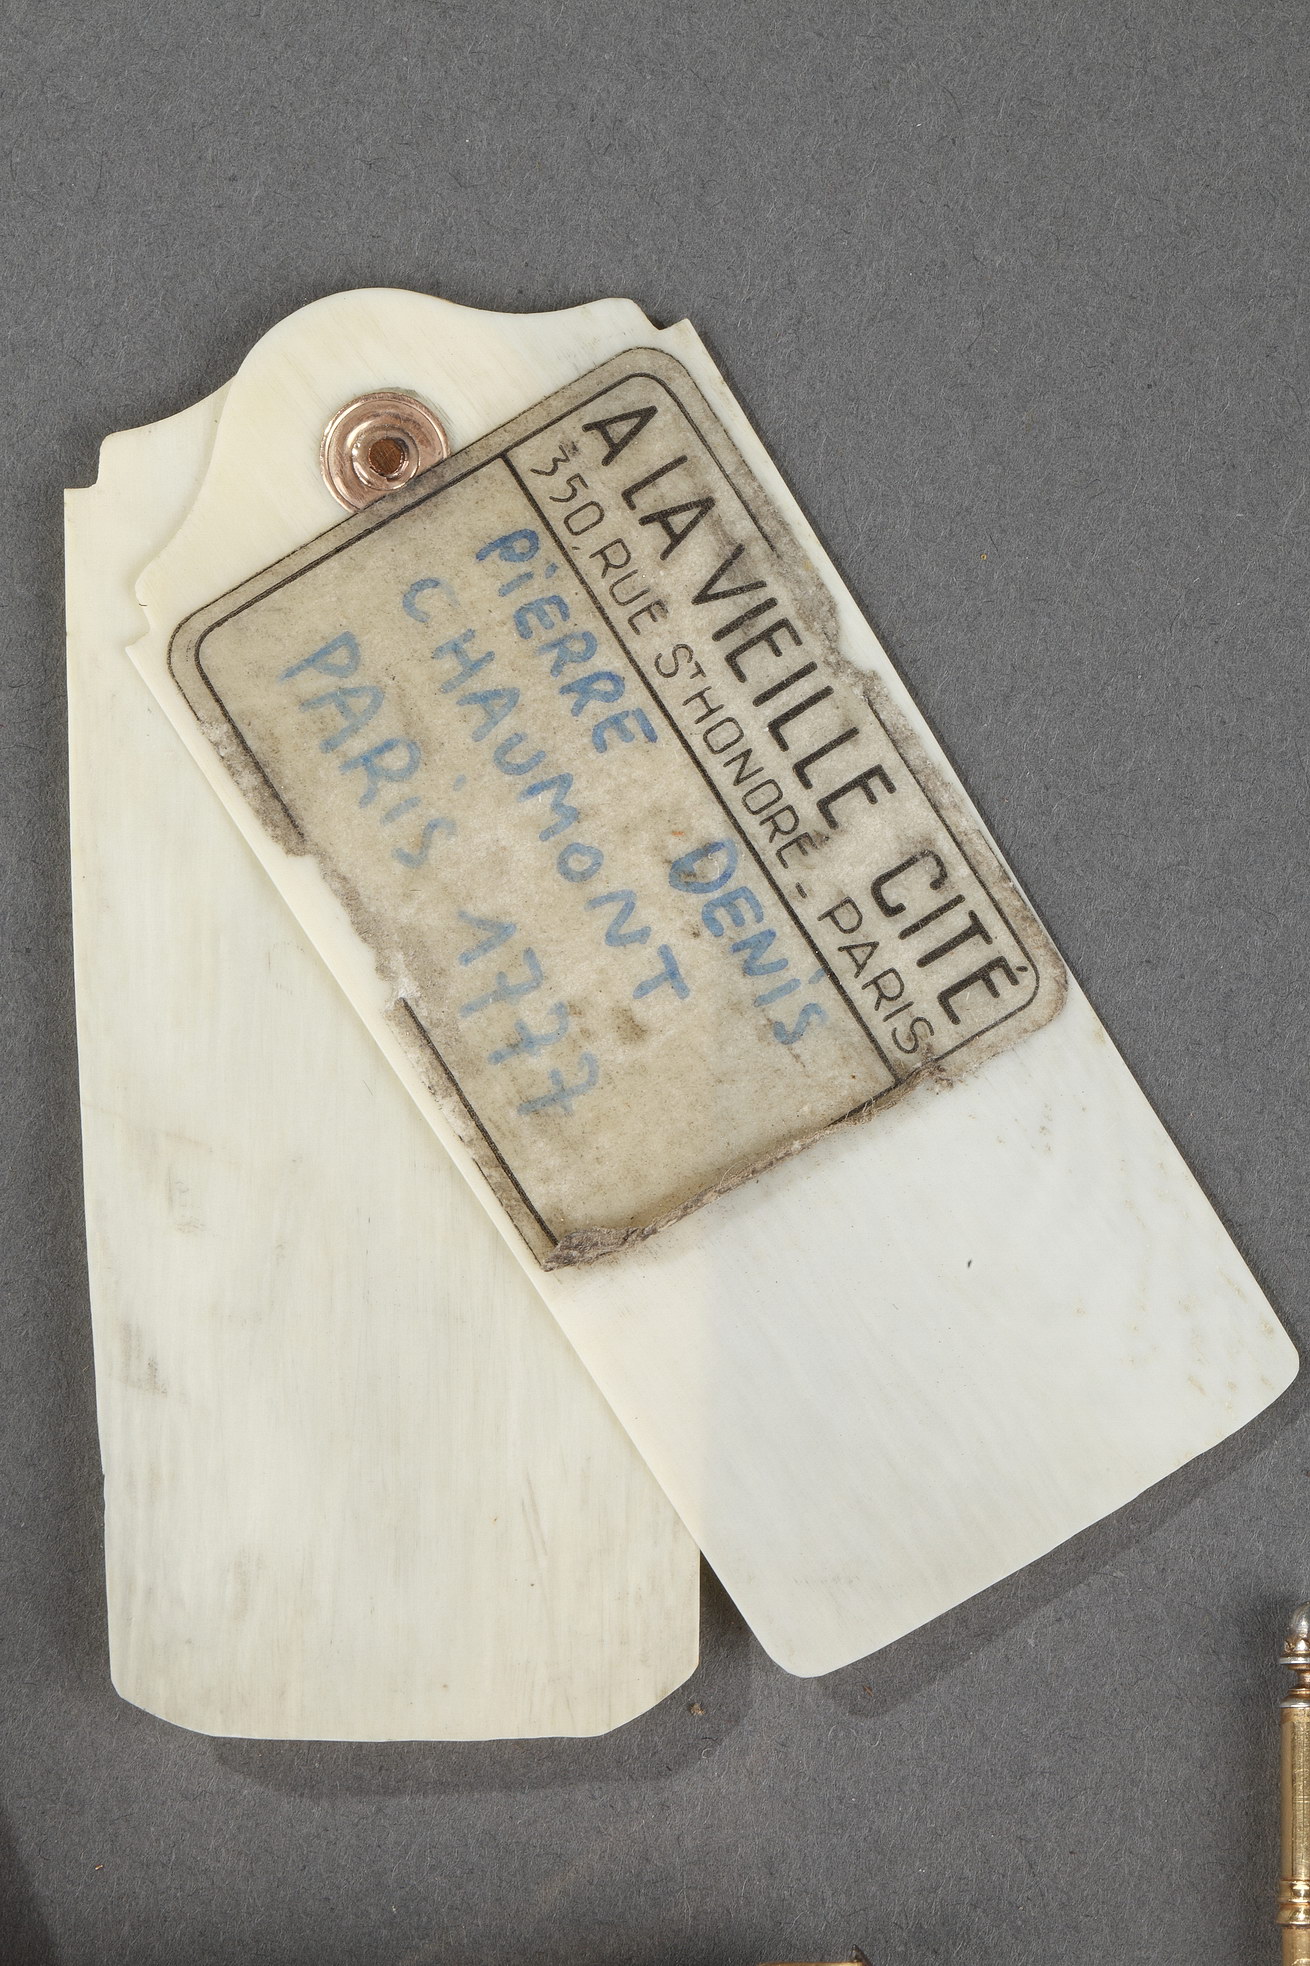 A LA VIEILLE CITÉ
350, RUE ST HONORÉ - PARIS
PiERRE DENiS
CHAUMONT
PARiS 1777